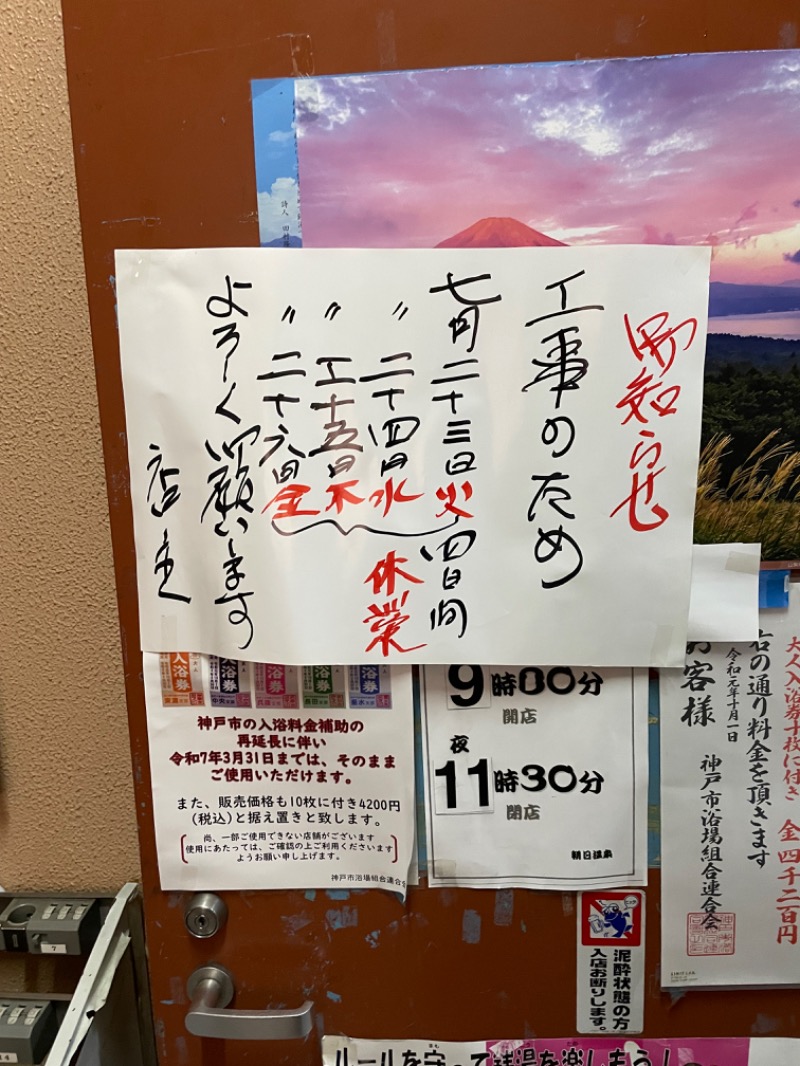 御知らせ
工事のため
七月二十三日火
〃 二十四日水
〃 二十五日木
〃 二十六日金
四日間
休業
よろしく御願います
店主
詩人
入浴券
入浴券
入浴券
入浴券
入浴券
神戸市の入浴料金補助の
再延長に伴い
令和7年3月31日までは、そのまま
ご使用いただけます。
また、販売価格も10枚に付き4200円
(税込)と据え置きと致します。
尚、一部ご使用できない店舗がございます
使用にあたっては、ご確認の上ご利用くださいます
ようお願い申し上げます。
神戸市浴場組合連合会
9時00分
開店
夜
11時30分
閉店
朝日温泉
大人入浴券十枚に付き 金四千二百円
右の通り料金を頂きます
令和元年十月一日
神戸市浴場組合連合会
お客様
泥酔状態の方
入店お断りします。
ルールを守って銭湯を楽しもう!